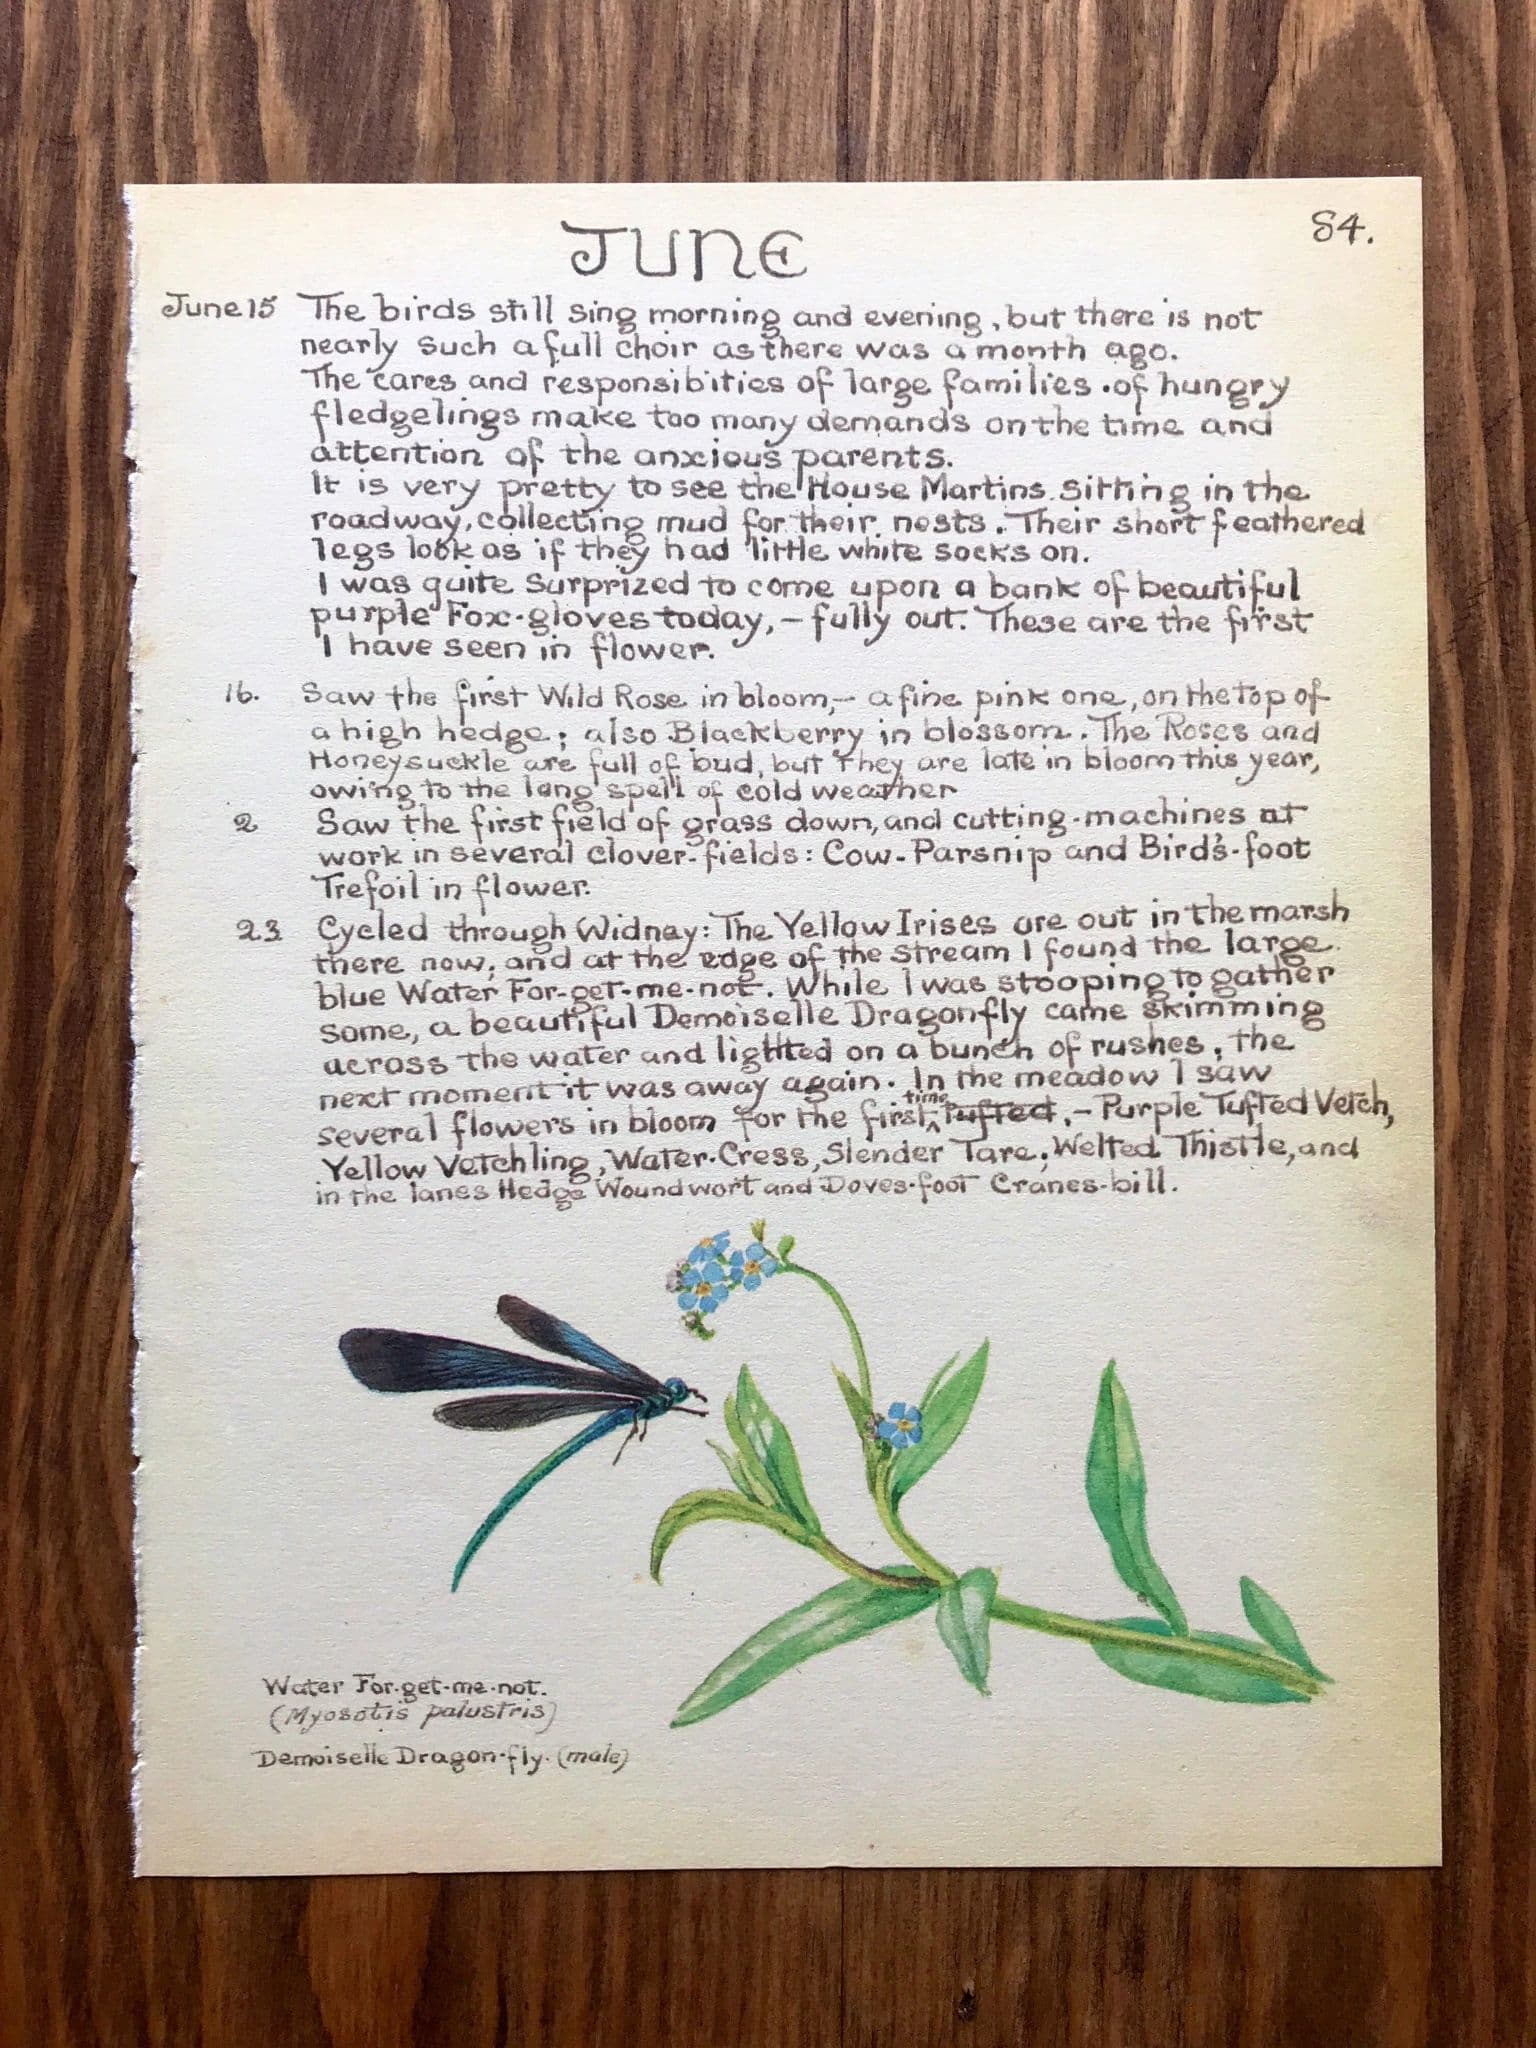 84.
JUNE
June 15 The birds still sing morning and evening, but there is not
nearly such a full choir as there was a month ago.
The cares and responsibities of large families of hungry
fledgelings make too many demands on the time and
attention of the anxious parents.
It is very pretty to see the House Martins sitting in the
roadway, collecting mud for their nests. Their short feathered
legs look as if they had little white socks on.
I was quite surprized to come upon a bank of beautiful
purple Fox-gloves today, – fully out. These are the first
I have seen in flower.
16. Saw the first Wild Rose in bloom, – a fine pink one, on the top of
a high hedge; also Blackberry in blossom. The Roses and
Honeysuckle are full of bud, but they are late in bloom this year,
owing to the long spell of cold weather
2 Saw the first field of grass down, and cutting-machines at
work in several clover-fields: Cow-Parsnip and Bird's-foot
Trefoil in flower.
23 Cycled through Widney: The Yellow Irises are out in the marsh
there now, and at the edge of the stream I found the large
blue Water For-get-me-not. While I was stooping to gather
some, a beautiful Demoiselle Dragonfly came skimming
across the water and lighted on a bunch of rushes, the
next moment it was away again. In the meadow I saw
several flowers in bloom for the first time Tufted, – Purple Tufted Vetch,
Yellow Vetchling, Water-Cress, Slender Tare, Welted Thistle, and
in the lanes Hedge Woundwort and Doves-foot Cranes-bill.
Water For-get-me-not.
(Myosotis palustris)
Demoiselle Dragon-fly. (male)